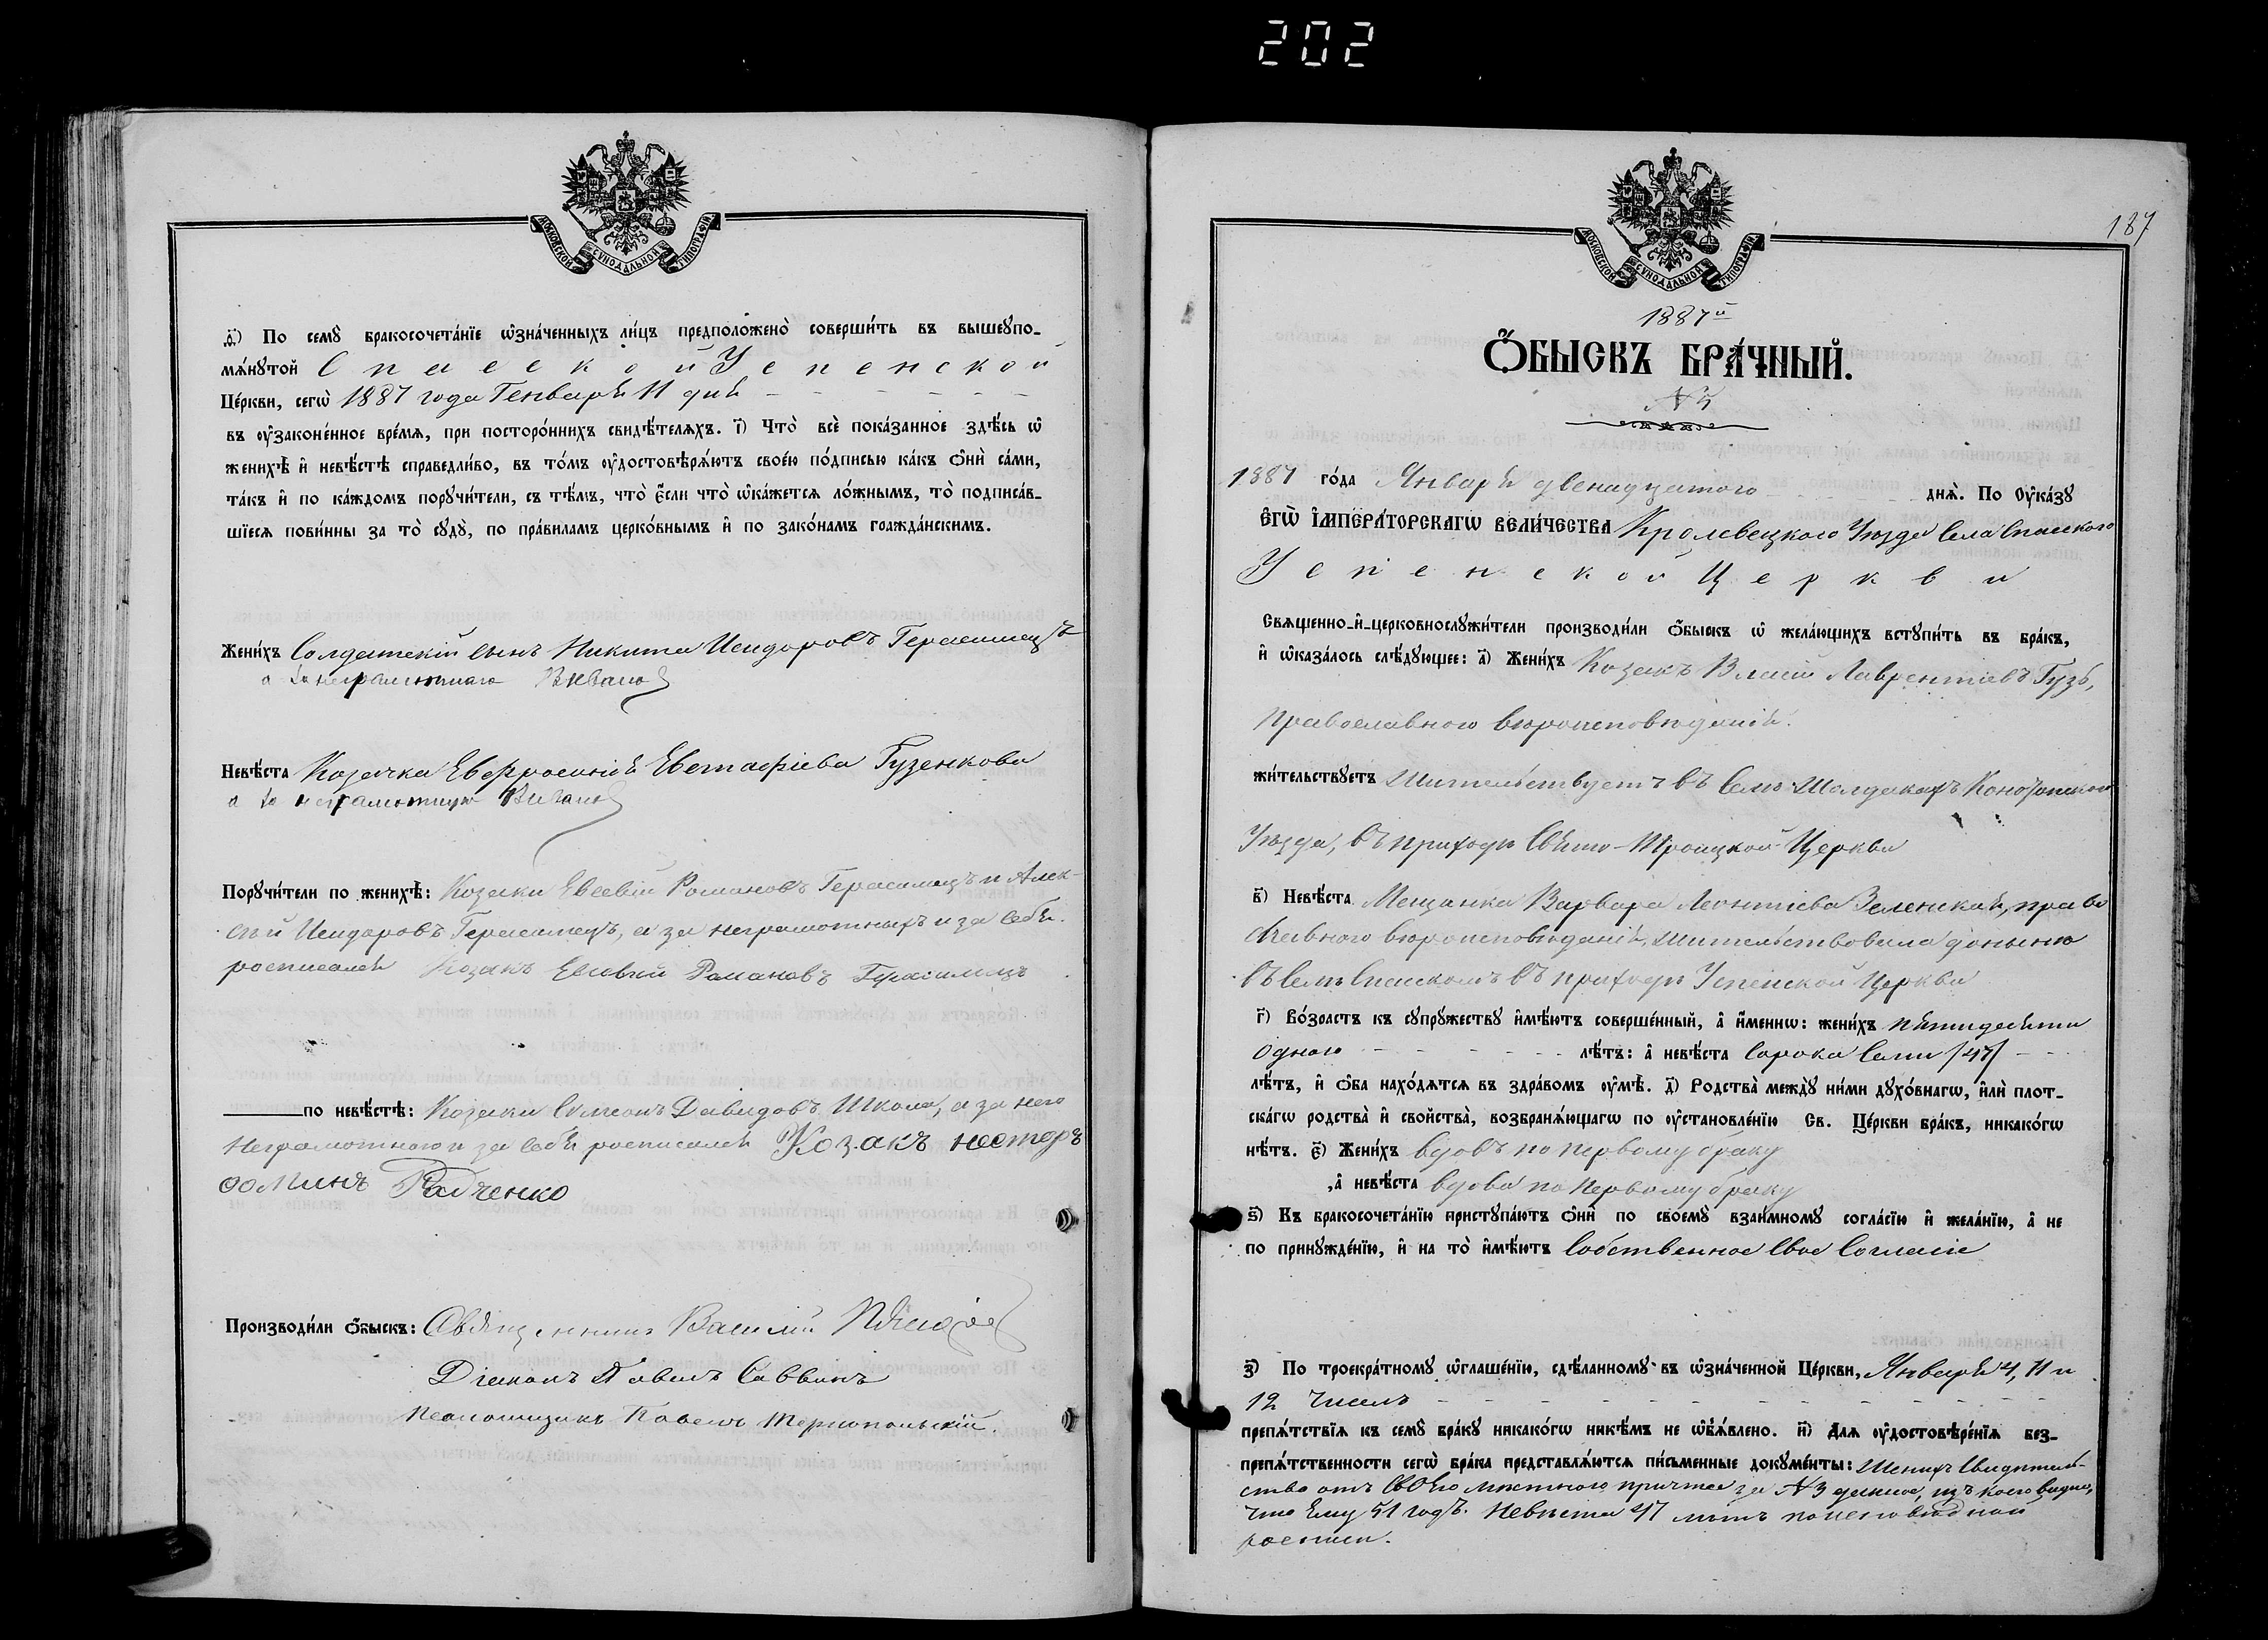 202
МОСКОВСКОЙ СУНОДАЛЬНОЙ ТИПОГРАФІИ
ѳ҃) По семꙋ̀ бракосочета́нїе ѡ҆зна́ченныхъ ли́цъ предположено̀ соверши́ть въ вышеꙋпо-
мѧ́нꙋтой Спасской Успенской
Це́ркви, сегѡ̀ 1887 года Генваря 11 дня
въ ᲂу҆законе́нное вре́мѧ, при посторо́ннихъ свидѣ́телѧхъ. і҃) Что̀ всѐ пока́занное здѣ́сь ѡ҆
женихѣ̀ и҆ невѣ́стѣ справедли́во, въ то́мъ ᲂу҆достовѣрѧ́ютъ свое́ю по́дписью ка́къ ѻ҆нѝ са́ми,
та́къ и҆ по ка́ждомъ порꙋчи́тели, съ тѣ́мъ, что̀ є҆́сли что̀ ѡ҆ка́жетсѧ ло́жнымъ, то̀ подписа́в-
шїесѧ пови́нны за то̀ сꙋдꙋ̀, по пра́виламъ церко́внымъ и҆ по зако́намъ гражда́нскимъ.
Жени́хъ Солдатскій сынъ Никита Исидоровъ Герасимецъ
а за неграмотнаго
Невѣ́ста Козачка Евфросинія Евстафіева Гузенкова
а за неграмотную
Порꙋчи́тели по женихѣ̀: Козаки Евсевій Романовъ Герасимецъ и Алек-
сѣй Исидоровъ Герасимецъ, а за неграмотныхъ и за себя
росписался Козакъ Евсевій Романовъ Герасимецъ
по невѣ́стѣ: Козаки Симеонъ Давидовъ Школа, а за него
неграмотного и за себя росписался Козакъ нестеръ
фоминъ Радченко
Производи́ли ѻ҆́быскъ: Священникъ Василій
Діаконъ Павелъ Саввинъ
Псаломщикъ Павелъ Тернопольскій.
187
МОСКОВСКОЙ СУНОДАЛЬНОЙ ТИПОГРАФІИ
1887й
Ѻ҆́БЫСКЪ БРА́ЧНЫЙ.
1887 го́да Января двенадцатого днѧ̀. По Оу҆ка́зꙋ
Є҆ГѠ̀ И҆МПЕРА́ТОРСКАГѠ ВЕЛИ́ЧЕСТВА Кролевецкого Уѣзда Села Спаского
Успенской Церкви
Свѧще́нно-и҆-церковнослꙋжи́тели производи́ли ѻ҆́быскъ ѡ҆ жела́ющихъ встꙋпи́ть въ бра́къ,
и҆ ѡ҆каза́лось слѣ́дꙋющее: а҃) Жени́хъ Козакъ Власій Лаврентіевъ Гузь,
православного вѣроисповѣданія.
жи́тельствꙋетъ жительствуетъ въ Селѣ Шелудкахъ Конотопского
Уѣзда, въ приходѣ Свято-Троицкой Церкви
в҃) Невѣ́ста Мещанка Варвара Леонтіева Зеленская, право
славного вѣроисповѣданія, жительствовала донынѣ
въ Селѣ Спаскомъ въ приходѣ Успенской Церкви
г҃) Во́зрастъ къ сꙋпрꙋ́жествꙋ и҆мѣ́ютъ соверше́нный, а҆ и҆́меннѡ: жени́хъ пятидесяти
одного лѣ́тъ: а҆ невѣ́ста Сорока Семи /47/
лѣ́тъ, и҆ ѻ҆́ба нахо́дѧтсѧ въ здра́вомъ ᲂу҆мѣ̀. д҃) Родства̀ междꙋ̀ ни́ми дꙋхо́внагѡ, и҆лѝ плот-
ска́гѡ родства̀ и҆ свойства̀, возбранѧ́ющагѡ по ᲂу҆становле́нїю Св. Це́ркви бра́къ, никако́гѡ
нѣ́тъ. є҃) Жени́хъ вдовъ по первому браку
, а҆ невѣ́ста вдова по первому браку
ѕ҃) Къ бракосочета́нїю пристꙋпа́ютъ ѻ҆нѝ по своемꙋ̀ взаи́мномꙋ согла́сїю и҆ жела́нїю, а҆ не
по принꙋжде́нїю, и҆ на то̀ и҆мѣ́ютъ Собственное Свое Согласіе
з҃) По троекра́тномꙋ ѡ҆глаше́нїю, сдѣ́ланномꙋ въ ѡ҆зна́ченной Це́ркви, Января 4, 11 и
12 Чиселъ
препѧ́тствїѧ къ семꙋ̀ бра́кꙋ никако́гѡ никѣ́мъ не ѡ҆б̾ѧ́влено. и҃) Длѧ ᲂу҆достовѣре́нїѧ без-
препѧ́тственности сегѡ̀ бра́ка представлѧ́ютсѧ пи́сьменные докꙋме́нты: Жених Свидѣтель-
ство отъ своего мѣстного причта за № 3 данное, изъ коего видно,
что Ему 51 годъ. Невѣста 47 лѣтъ по исповѣдной
росписи.